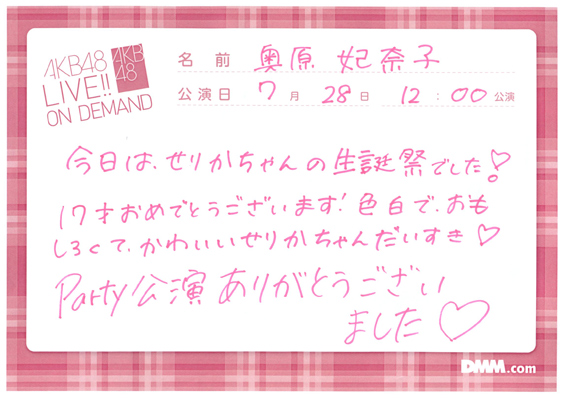 AKB48
LIVE!!
ON DEMAND
AKB
48
名前 奥原 妃奈子
公演日 7月 28日 12:00公演
今日は、せりかちゃんの生誕祭でした♡
17才おめでとうございます!色白で、おも
しろくて、かわいいせりかちゃんだいすき♡
Party公演 ありがとうござい
ました♡
DMM.com